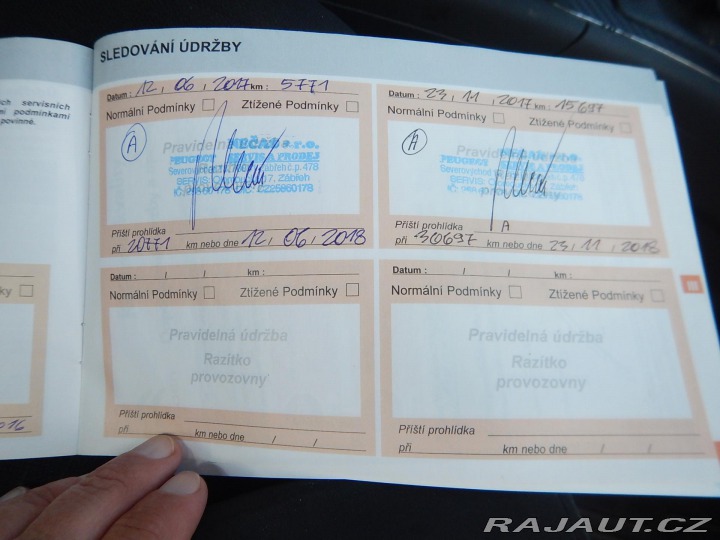 SLEDOVÁNÍ ÚDRŽBY
ch servisních
mi podmínkami
povinné.
Datum : 12, 06, 2017 km : 5771
Normální Podmínky Ztížené Podmínky
A
Pravidelná
NEČAS s.r.o.
PEUGEOT SERVIS A PRODEJ
Zábřeh
CZ25860178
Příští prohlídka
při 20771 km nebo dne 12, 06, 2018
Datum : 23, 11, 2017 km : 15697
Normální Podmínky Ztížené Podmínky
A
Pravidelná
PEUGEOT
Příští prohlídka A
při 30697 km nebo dne 23, 11, 2018
Datum : / / km :
Normální Podmínky Ztížené Podmínky
Pravidelná údržba
Razítko
provozovny
Příští prohlídka
při km nebo dne / /
Datum : / / km :
Normální Podmínky Ztížené Podmínky
Pravidelná údržba
Razítko
provozovny
Příští prohlídka
při km nebo dne / /
ky
2016
RAJAUT.CZ